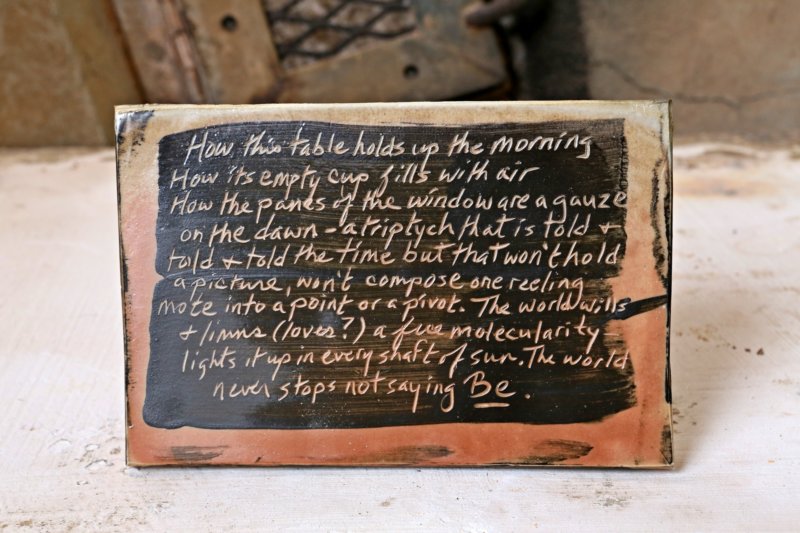 How this table holds up the morning
How its empty cup fills with air
How the panes of the window are a gauze
on the dawn – a triptych that is told +
told + told the time but that won't hold
a picture, won't compose one reeling
mote into a point or a pivot. The world wills
+ limns (loves?) a free molecularity
lights it up in every shaft of sun. The world
never stops not saying Be.